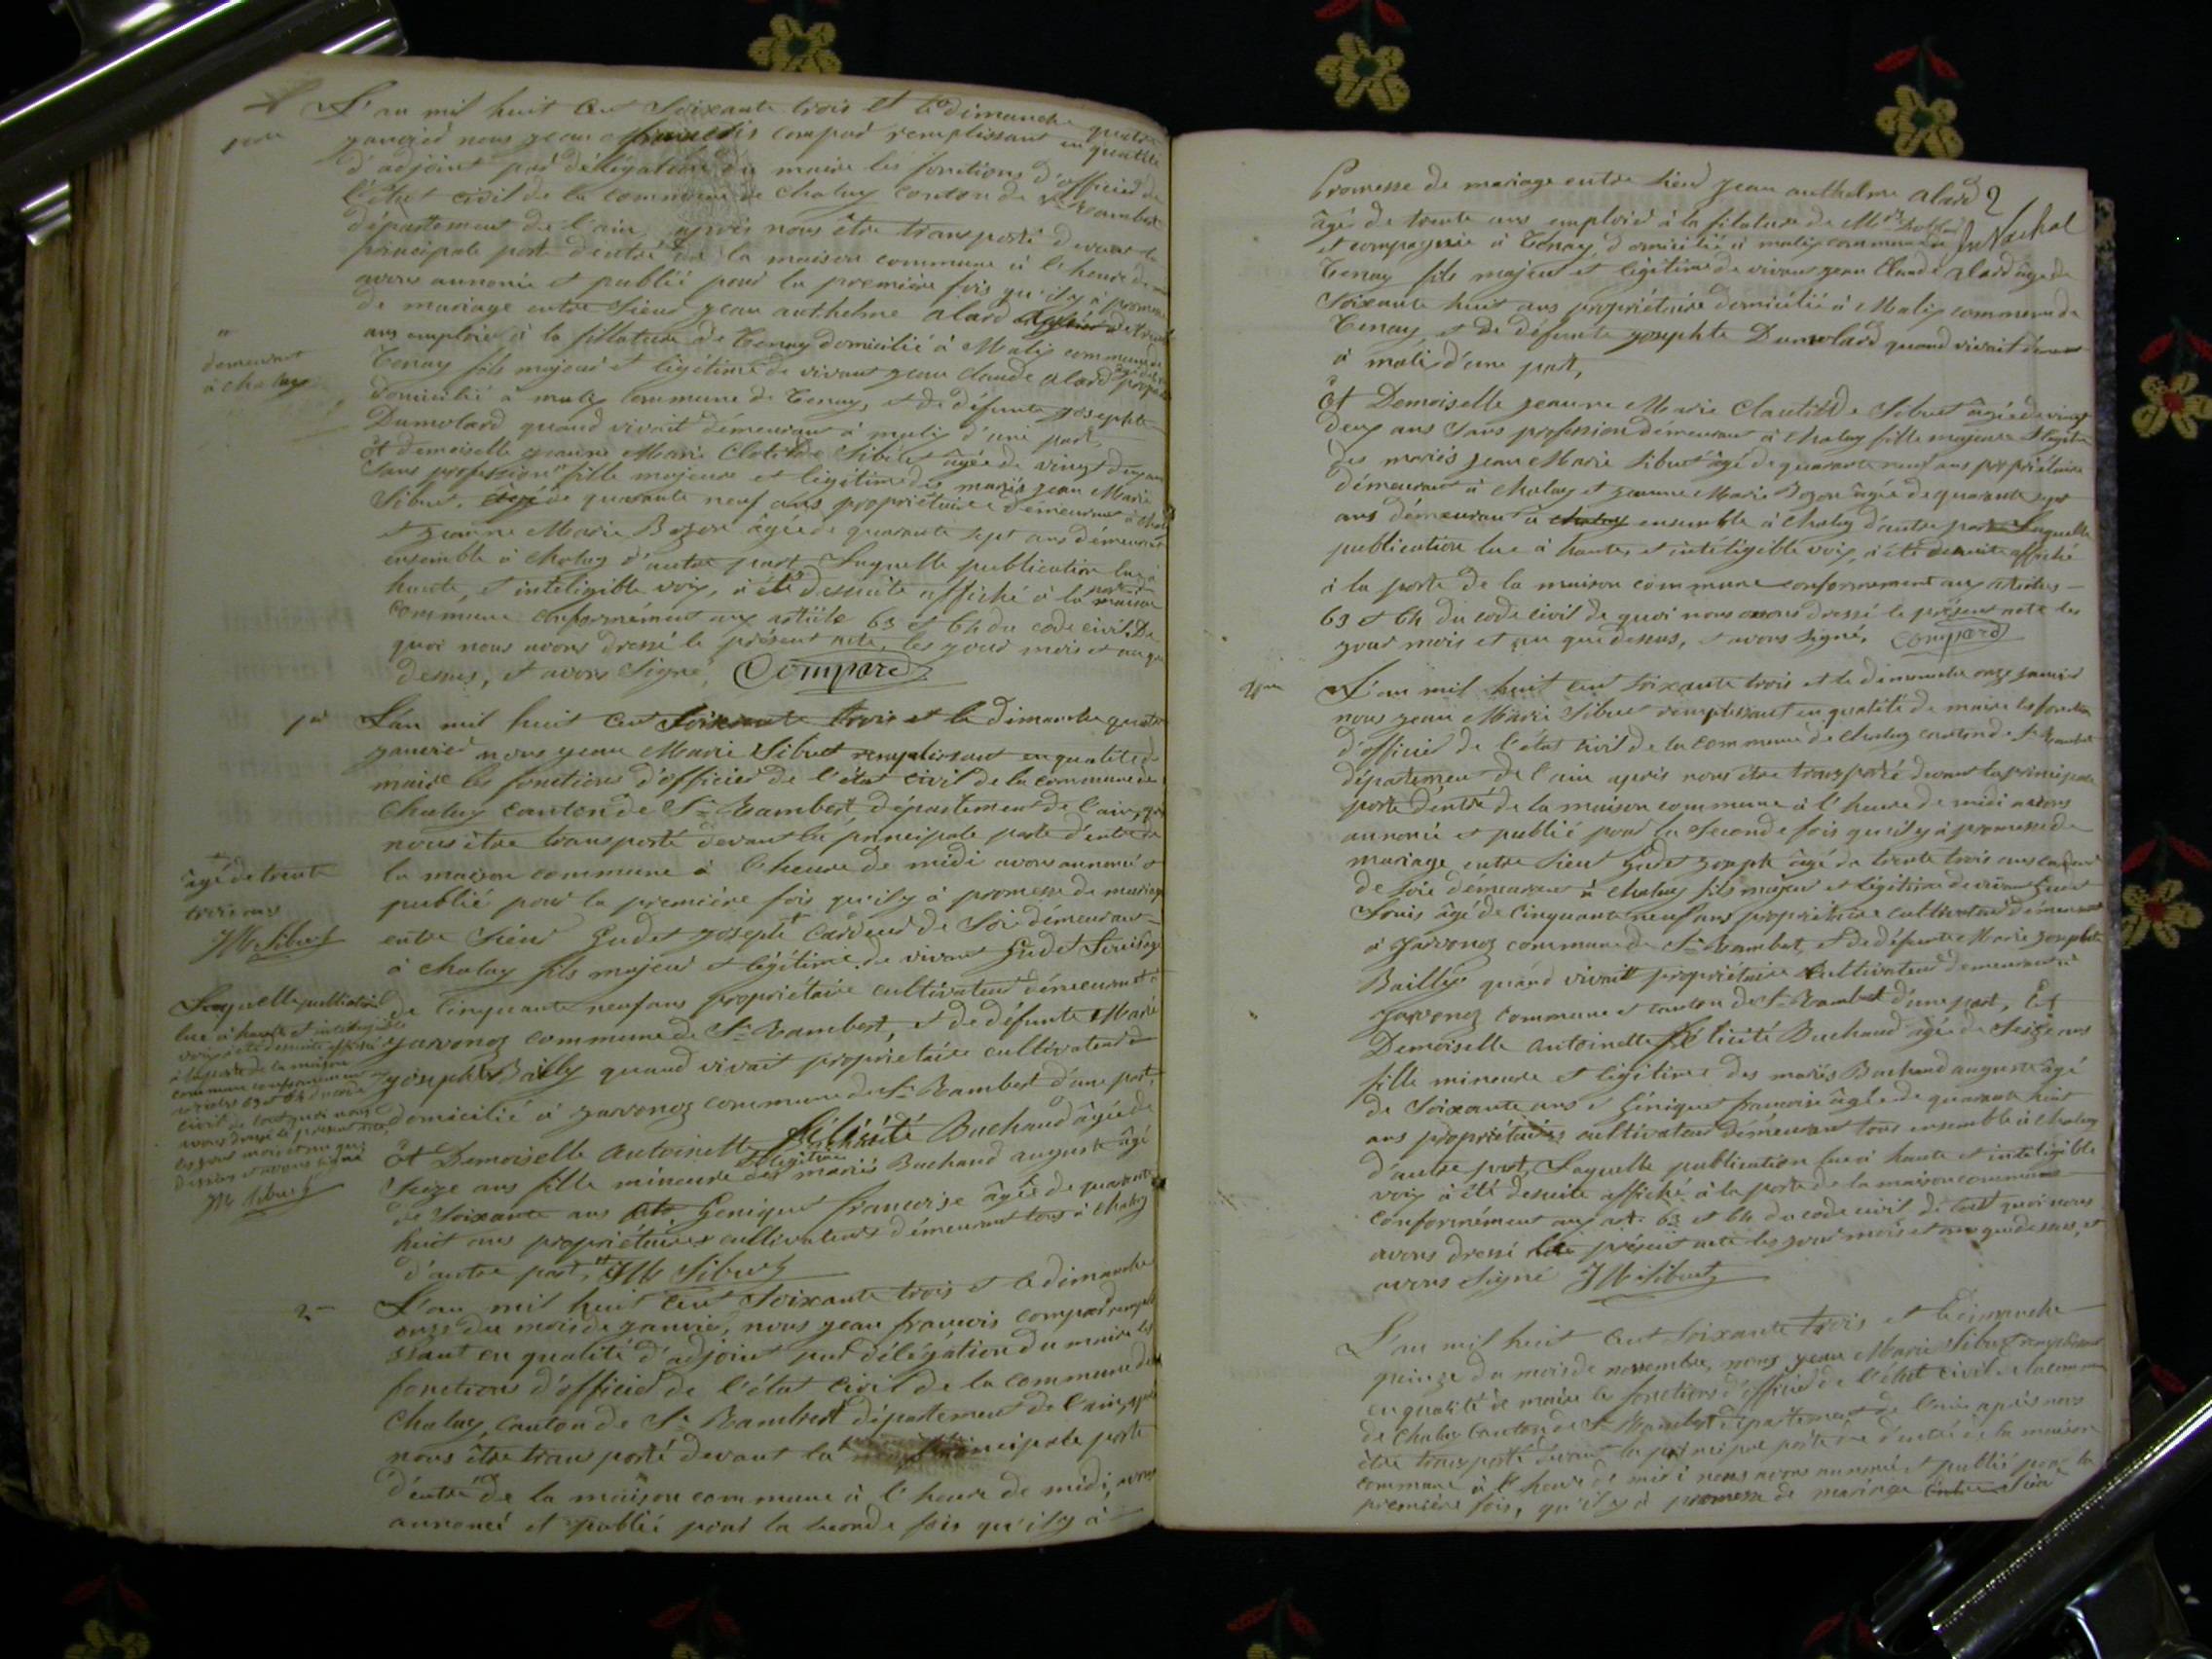 L'an mil huit cent soixante trois et le dimanche quatre
janvier nous jean françois compard remplissant en qualité
d'adjoint par délégation du maire les fonctions d'officier de
l'état civil de la commune de chaley canton de St Rambert
département de l'ain, après nous être transporté devant la
principale porte d'entré de la maison commune à l'heure de
avons annoncé et publié pour la première fois qu'il y à promesse
de mariage entre Sieur jean anthelme alard de trente
ans emploié à la fillature de Tenay domicilié à Malix commune de
Tenay fils majeur et légitime de vivant jean claude alard
domicilié à malix commune de Tenay, et de défunte josephte
Dumolard quand vivait démeurant à malix d'une part,
et demoiselle jeanne Marie Clotilde Sibuet âgée de vingt deux ans
sans profession " fille majeure et légitime des mariés jean Marie
Sibuet, âgé de quarante neuf ans propriétaire démeurant à
et jeanne Marie Bozon âgée de quarante sept ans démeurant
ensemble à chaley d'autre part Laquelle publication lue à
haute, et inteligible voix, à été desuite affiché à la porte maison
commune conformément aux article 63 et 64 du code civil. De
quoi nous avons dressé le présent acte, les jour mois et an que
dessus, et avons signé, Compard
"
demeurant
à chaley
1er
L'an mil huit cent soixante trois et le dimanche quatre
janvier nous jean Marie Sibuet remplissant en qualité de
maire les fonctions d'officier de l'état civil de la commune de
Chaley canton de St Rambert, département de l'ain, après
nous être transporté devant la principale porte d'entré de
la maison commune à l'heure de midi avons annoncé et
publié pour la première fois qu'il y à promesse de mariage
entre Sieur Gudet joseph + cardeur de soie démeurant
à chaley fils majeur et légitime de vivant Gudet Louis âgé
de cinquante neuf ans propriétaire cultivateur démeurant à
javornoz commune de St Rambert, et de défunte Marie
josephte Bailly quand vivait propriétaire cultivateur
domicilié à javornoz commune de St Rambert d'une part,
Et Demoiselle Antoinette félicité Buchaud âgée de
seize ans fille mineure et légitime des mariés Buchaud auguste âgé
de soixante ans et Genique françoise âgée de quarante
huit ans propriétaires cultivateurs démeurant tous à chaley
d'autre part, JM Sibuet
+
âgé de trente
trois ans
JM Sibuet
Laquelle publication
lue à haute et inteligible
voix à été desuite affiché
à la porte de la maison
commune conformément aux
articles 63 et 64 du code
civil de tout quoi nous
avons dressé le présent acte
les jour mois et an que
dessus et avons signé
JM Sibuet
2
L'an mil huit cent soixante trois et le dimanche
onze du mois de janvier, nous jean françois compard rempli
ssant en qualité d'adjoint par délégation du maire les
fonctions d'officier de l'état civil de la commune de
Chaley, canton de St Rambert département de l'ain, après
nous être transporté devant la principale porte
d'entré de la maison commune à l'heure de midi, avons
annoncé et publié pour la seconde fois qu'il y à
Promesse de mariage entre Sieur jean anthelme alard
âgé de trente ans emploié à la filature de
et compagnie à Tenay, domicilié à malix commune de
Tenay fils majeur et légitime de vivant jean Claude alard âgé de
soixante huit ans propriétaire domicilié à Malix commune de
Tenay, et de défunte josephte Dumolard quand vivait
à malix d'une part,
Et Demoiselle jeanne Marie Clautilde Sibuet âgée de vingt
deux ans sans profession démeurant à chaley fille majeure et
des mariés jean Marie Sibuet âgé de quarante neuf ans propriétaire
démeurant à chaley et jeanne Marie Bozon âgée de quarante sept
ans démeurant à chaley ensemble à chaley d'autre part Laquelle
publication lue à haute, et intéligible voix, à été desuite affiché
à la porte de la maison commune conformément aux articles
63 et 64 du code civil de quoi nous avons dressé le présent acte les
jour mois et an que dessus, et avons signé, Compard
L'an mil huit cent soixante trois et le dimanche onze janvier
nous jean Marie Sibuet remplissant en qualité de maire les fonctions
d'officier de l'état civil de la commune de chaley canton de St Rambert
département de l'ain après nous être transporté devant la principale
porte d'entré de la maison commune à l'heure de midi avons
annoncé et publié pour la seconde fois qu'il y à promesse de
mariage entre Sieur Gudet joseph âgé de trente trois ans cardeur
de soie démeurant à chaley fils majeur et légitime de vivant Gudet
Louis âgé de cinquante neuf ans propriétaire cultivateur démeurant
à javornoz commune de St Rambert, et de défunte Marie josephte
Bailly quand vivait propriétaire cultivateur demeurant à
javornoz commune et canton de St Rambert d'une part, Et
Demoiselle Antoinette félicité Buchaud âgée de seize ans
fille mineure et légitime des mariés Buchaud auguste âgé
de soixante ans et Génique françoise âgée de quarante huit
ans propriétaires cultivateur démeurant tous ensemble à chaley
d'autre part, Laquelle publication lue à haute et intéligible
voix à été desuite affiché à la porte de la maison commune
conformément aux art. 63 et 64 du code civil de tout quoi nous
avons dressé le présent acte les jour mois et an que dessus, et
avons signé JM Sibuet
L'an mil huit cent soixante trois et le dimanche
quinze du mois de novembre, nous jean Marie Sibuet remplissant
en qualité de maire les fonctions d'officier de l'état civil de la commune
de Chaley canton de St Rambert département de l'ain après nous
être transporté devant la principale porte d'entré de la maison
commune à l'heure de midi nous avons annoncé et publié pour la
première fois, qu'il y à promesse de mariage entre Sieur